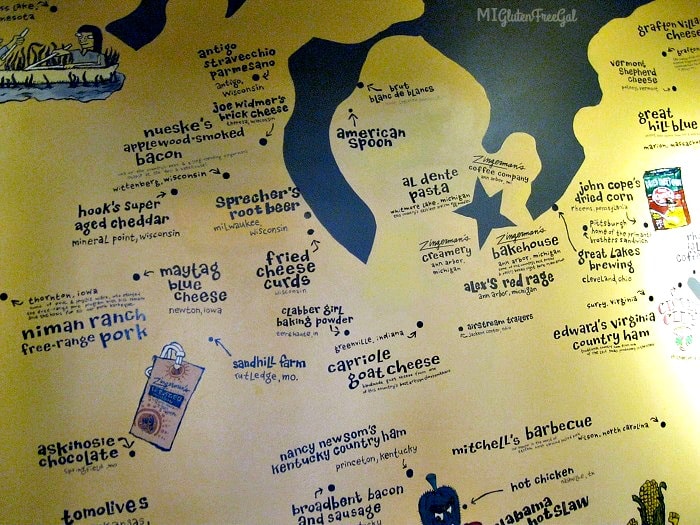 MIGlutenFreeGal
lake,
grafton village
cheese
vermont
shepherd
cheese
great
hill blue
antigo
stravecchio
parmesano
antigo,
wisconsin
joe widmer's
brick cheese
wisconsin
brut
blanc de blancs
american
spoon
nueske's
applewood-smoked
bacon
wittenberg, wisconsin
hook's super
aged cheddar
mineral point, wisconsin
sprecher's
root beer
milwaukee,
wisconsin
Zingerman's
coffee company
ann arbor, mi
al dente
pasta
whitmore lake, michigan
john cope's
dried corn
rheems, pennsylvania
Pittsburgh
home of the primanti
brothers sandwich
great lakes
brewing
cleveland, ohio
Zingerman's
creamery
ann arbor,
michigan
Zingerman's
bakehouse
ann arbor, michigan
alex's red rage
ann arbor, michigan
fried
cheese
curds
wisconsin
maytag
blue
cheese
newton, iowa
thornton, iowa
niman ranch
free-range pork
clabber girl
baking powder
terre haute, in
greenville, indiana
capriole
goat cheese
airstream trailers
jackson center, ohio
surry, virginia
edward's virginia
country ham
sandhill farm
rutledge, mo.
Zingerman's
askinosie
chocolate
springfield, mo
nancy newsom's
kentucky country ham
princeton, kentucky
mitchell's barbecue
wilson, north carolina
hot chicken
nashville, tn
broadbent bacon
and sausage
tomolives
alabama
hot slaw